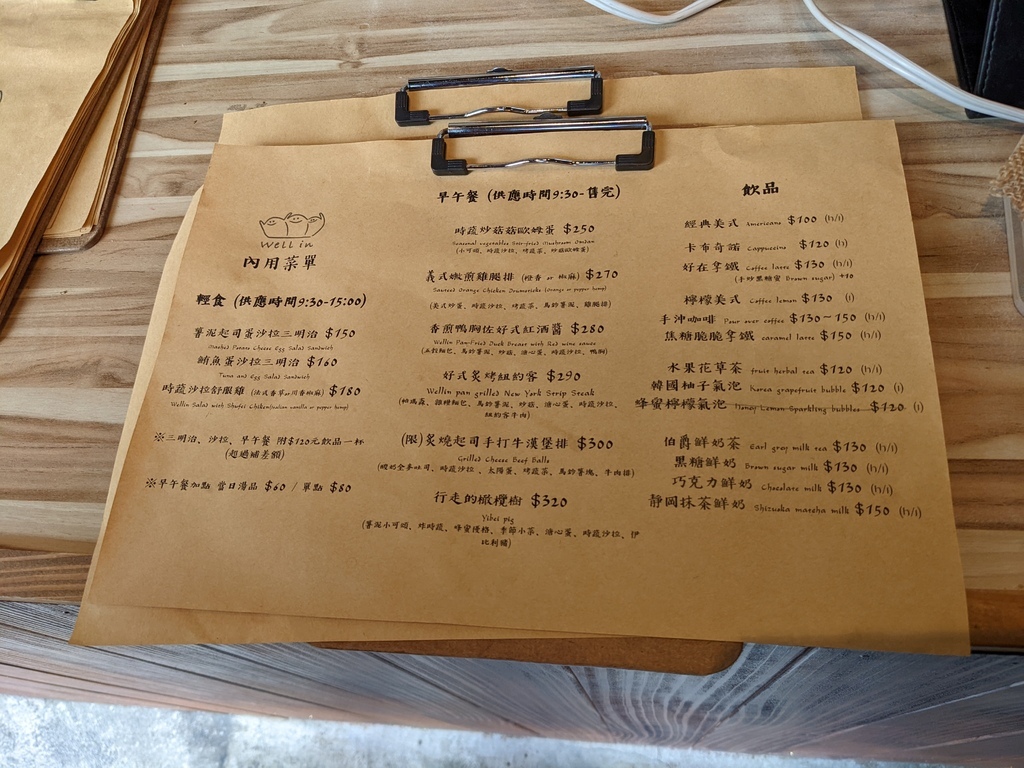 Well in
內用菜單
輕食 (供應時間9:30-15:00)
薯泥起司蛋沙拉三明治 $150
Mashed Potato Cheese Egg Salad Sandwich
鮪魚蛋沙拉三明治 $160
Tuna and Egg Salad Sandwich
時蔬沙拉舒服雞 (法式香草or川香椒麻) $180
Wellin Salad with Shufei Chicken(Italian vanilla or pepper hemp)
※三明治、沙拉、早午餐 附$120元飲品一杯
(超過補差額)
※早午餐加點 當日湯品 $60 / 單點 $80
早午餐 (供應時間9:30-售完)
時蔬炒菇菇歐姆蛋 $250
Seasonal vegetables Stir-fried Mushroom Omelan
(小可頌、時蔬沙拉、烤蔬菜、炒菇歐姆蛋)
義式嫩煎雞腿排 (橙香 or 椒麻) $270
Sauteed Orange Chicken Drumsticks (Orange or pepper hemp)
(美式炒蛋、時蔬沙拉、烤蔬菜、馬鈴薯泥、雞腿排)
香煎鴨胸佐好式紅酒醬 $280
Wellin Pan-Fried Duck Breast with Red wine sauce
(五穀麵包、馬鈴薯泥、炒菇、溏心蛋、時蔬沙拉、鴨胸)
好式炙烤紐約客 $290
Wellin pan grilled New York Strip Steak
(帕瑪森、雜糧麵包、馬鈴薯泥、炒菇、溏心蛋、時蔬沙拉、
紐約客牛肉)
(限)炙燒起司手打牛漢堡排 $300
Grilled Cheese Beef Balls
(酸奶全麥吐司、時蔬沙拉、太陽蛋、烤蔬菜、馬鈴薯塊、牛肉排)
行走的橄欖樹 $320
Yibei pig
(薯泥小可頌、炸時蔬、蜂蜜優格、季節小菜、溏心蛋、時蔬沙拉、伊
比利豬)
飲品
經典美式 Americano $100 (h/i)
卡布奇諾 Cappuccino $120 (h)
好在拿鐵 Coffee latte $130 (h/i)
(手炒黑糖蜜 Brown sugar) +10
檸檬美式 Coffee lemon $130 (i)
手沖咖啡 Pour over coffee $130~150 (h/i)
焦糖脆脆拿鐵 caramel latte $150 (h/i)
水果花草茶 fruit herbal tea $120 (h/i)
韓國柚子氣泡 Korea grapefruit bubble $120 (i)
蜂蜜檸檬氣泡 Honey Lemon Sparkling bubbles $120 (i)
伯爵鮮奶茶 Earl gray milk tea $130 (h/i)
黑糖鮮奶 Brown sugar milk $130 (h/i)
巧克力鮮奶 Chocolate milk $130 (h/i)
靜岡抹茶鮮奶 Shizuoka matcha milk $150 (h/i)